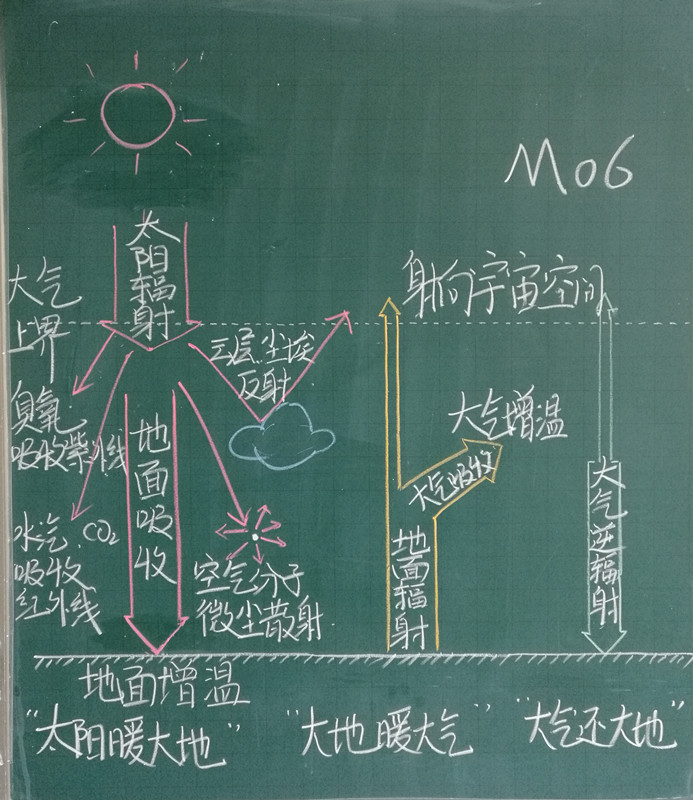 M06
太阳辐射
大气
上界
射向宇宙空间
云层、尘埃
反射
臭氧
吸收紫外线
地面吸收
大气增温
大气吸收
水汽、CO₂
吸收
红外线
空气分子
微尘散射
地面辐射
大气逆辐射
地面增温
“太阳暖大地”
“大地暖大气”
“大气还大地”